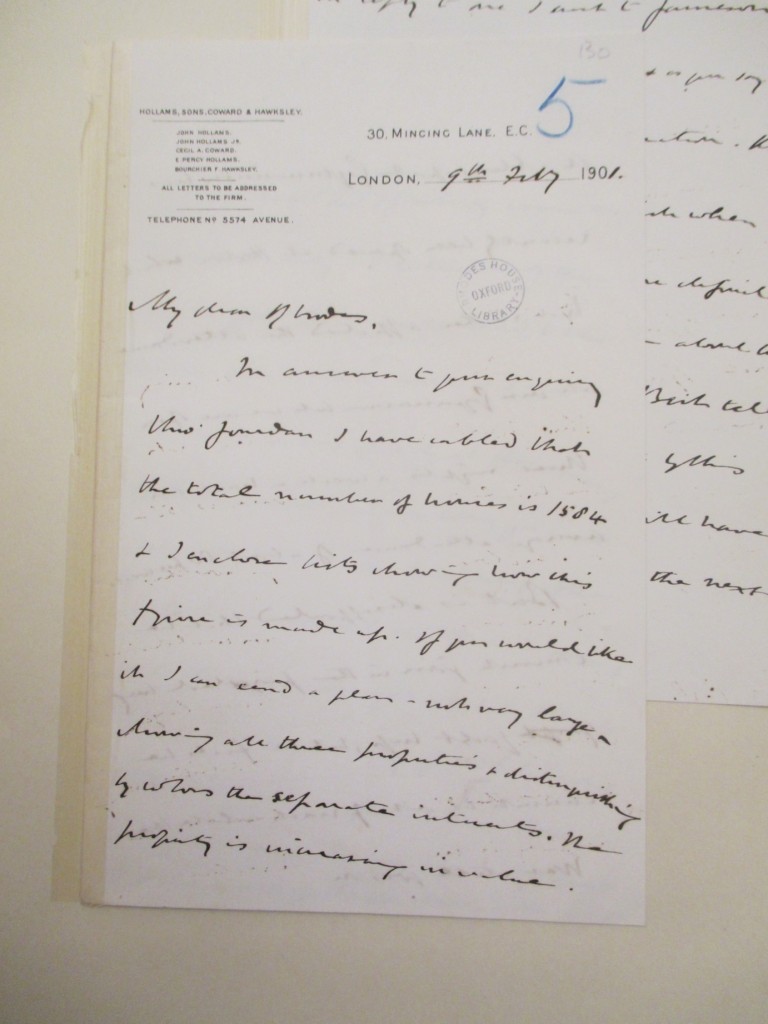 130
5
HOLLAMS, SONS, COWARD & HAWKSLEY.
JOHN HOLLAMS.
JOHN HOLLAMS JR.
CECIL A. COWARD.
E PERCY HOLLAMS.
BOURCHIER F. HAWKSLEY.
ALL LETTERS TO BE ADDRESSED
TO THE FIRM.
TELEPHONE Nº 5574 AVENUE.
30, MINCING LANE, E.C.
LONDON, 9th Feby 1901.
DES HOUSE
OXFORD
LIBRARY
My dear Rhodes,
In answer to your enquiry
thro' Jourdan I have cabled that
the total number of houses is 1584
& I enclose lists showing how this
figure is made up. If you would like
it I can send a plan - not very large -
showing all three properties & distinguishing
by colors the separate interests. The
property is increasing in value.
reply to me I sent to Jameson
as you say
when
definit
about
Beit tel
will have
the next